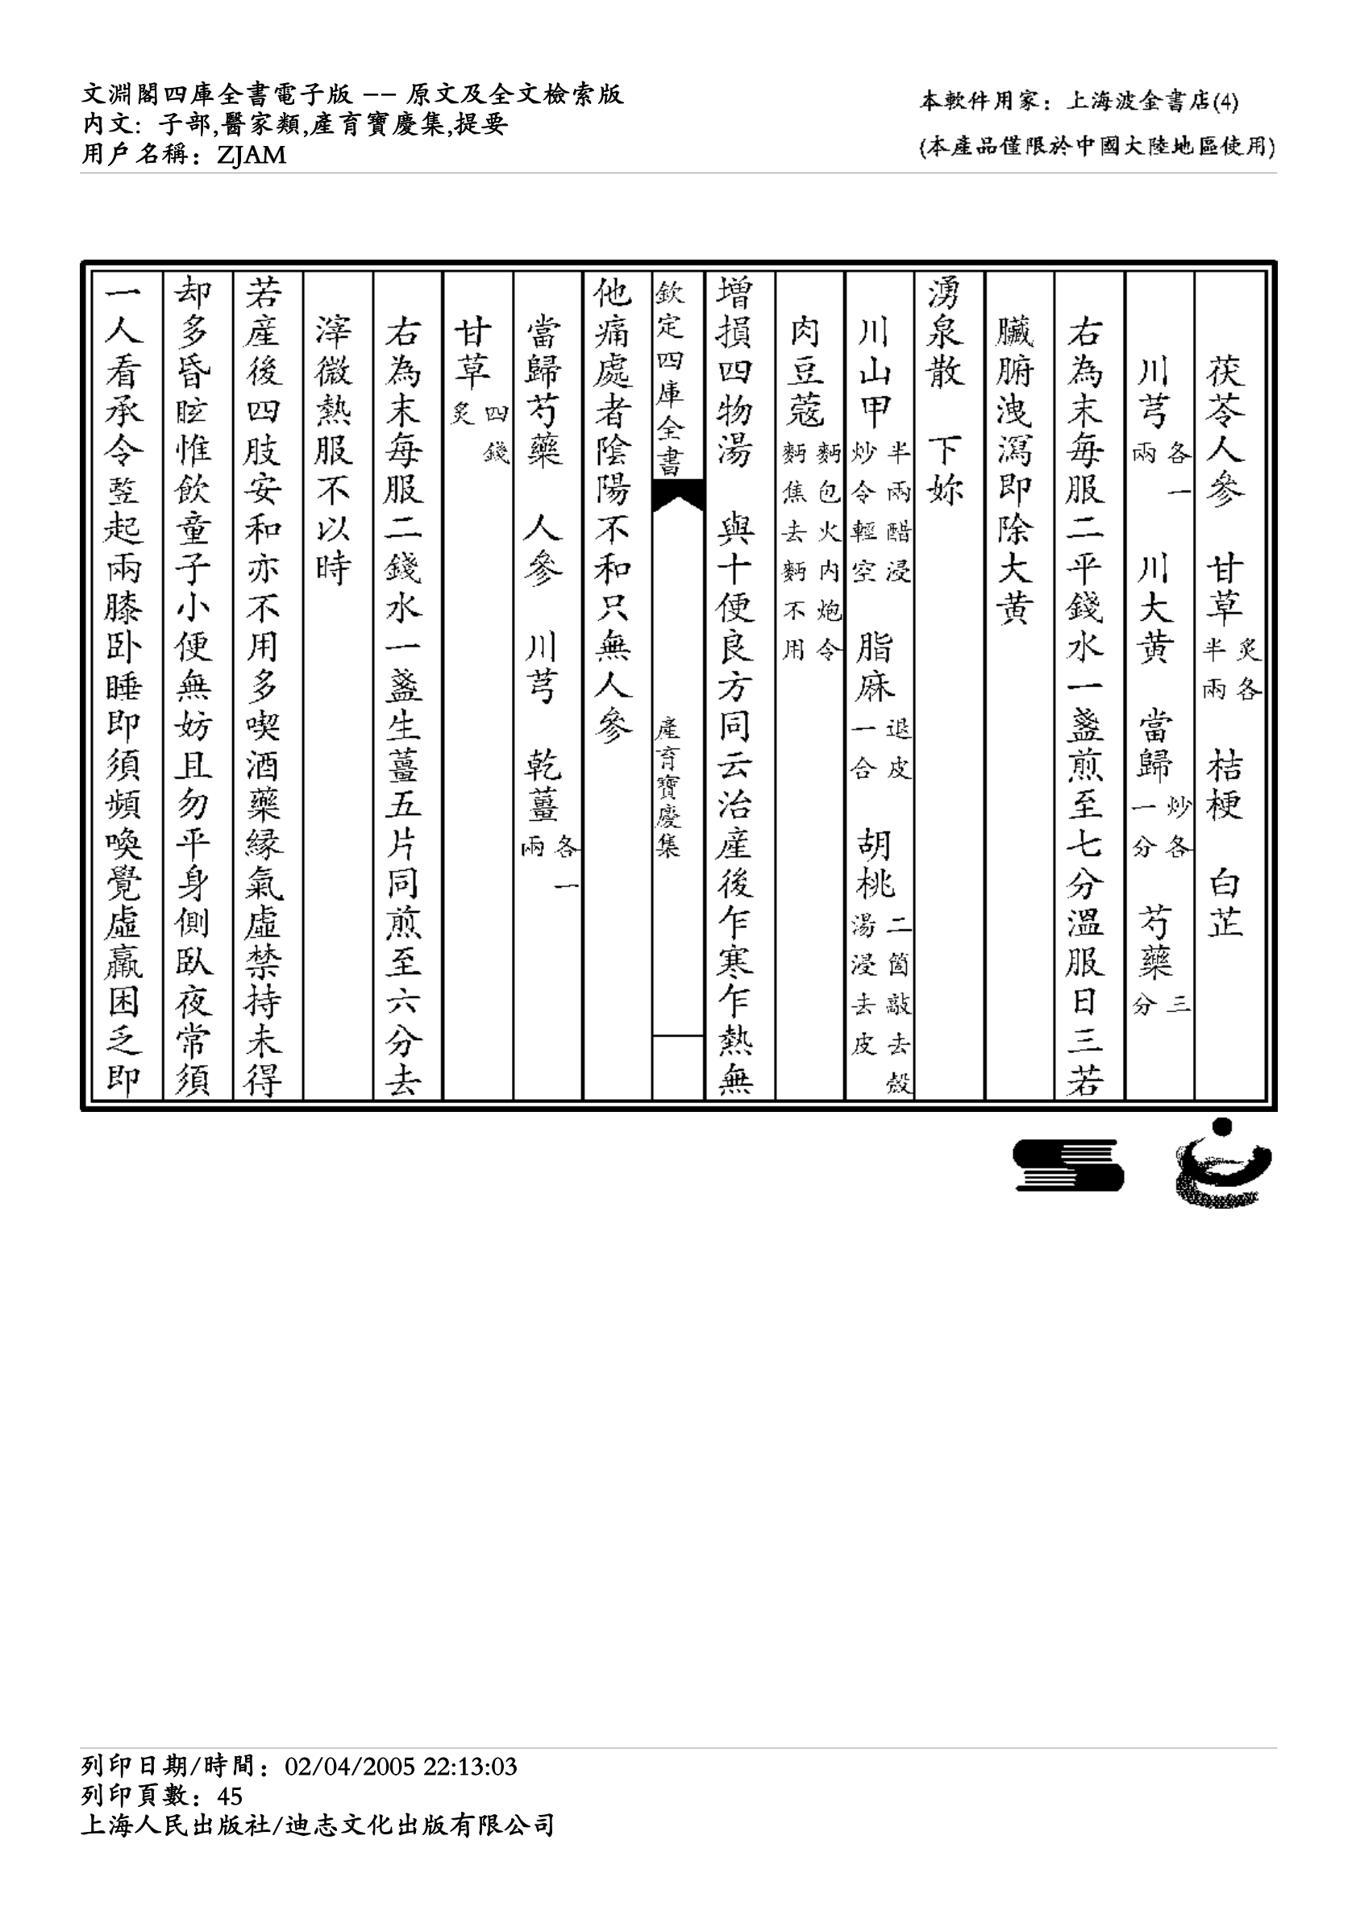 文淵閣四庫全書電子版 -- 原文及全文檢索版
内文: 子部,醫家類,產育寶慶集,提要
用戶名稱: ZJAM
本軟件用家: 上海波金書店(4)
(本產品僅限於中國大陸地區使用)
茯苓人參 甘草炙各半兩 桔梗 白芷
川芎各一兩 川大黄 當歸炒各一分 芍藥三分
右為末每服二平錢水一盞煎至七分溫服日三若
臟腑洩瀉即除大黄
湧泉散 下妳
川山甲半兩醋浸炒令輕空 脂麻退皮一合 胡桃二箇敲去殼湯浸去皮
肉豆蔻麪包火内炮令麪焦去麪不用
增損四物湯 與十便良方同云治產後乍寒乍熱無
欽定四庫全書 產育寶慶集
他痛處者陰陽不和只無人參
當歸芍藥 人參 川芎 乾薑各一兩
甘草四錢炙
右為末每服二錢水一盞生薑五片同煎至六分去
滓微熱服不以時
若產後四肢安和亦不用多喫酒藥縁氣虛禁持未得
却多昏眩惟飲童子小便無妨且勿平身側臥夜常須
一人看承令竪起兩膝卧睡即須頻喚覺虛羸困乏即
列印日期/時間: 02/04/2005 22:13:03
列印頁數: 45
上海人民出版社/迪志文化出版有限公司